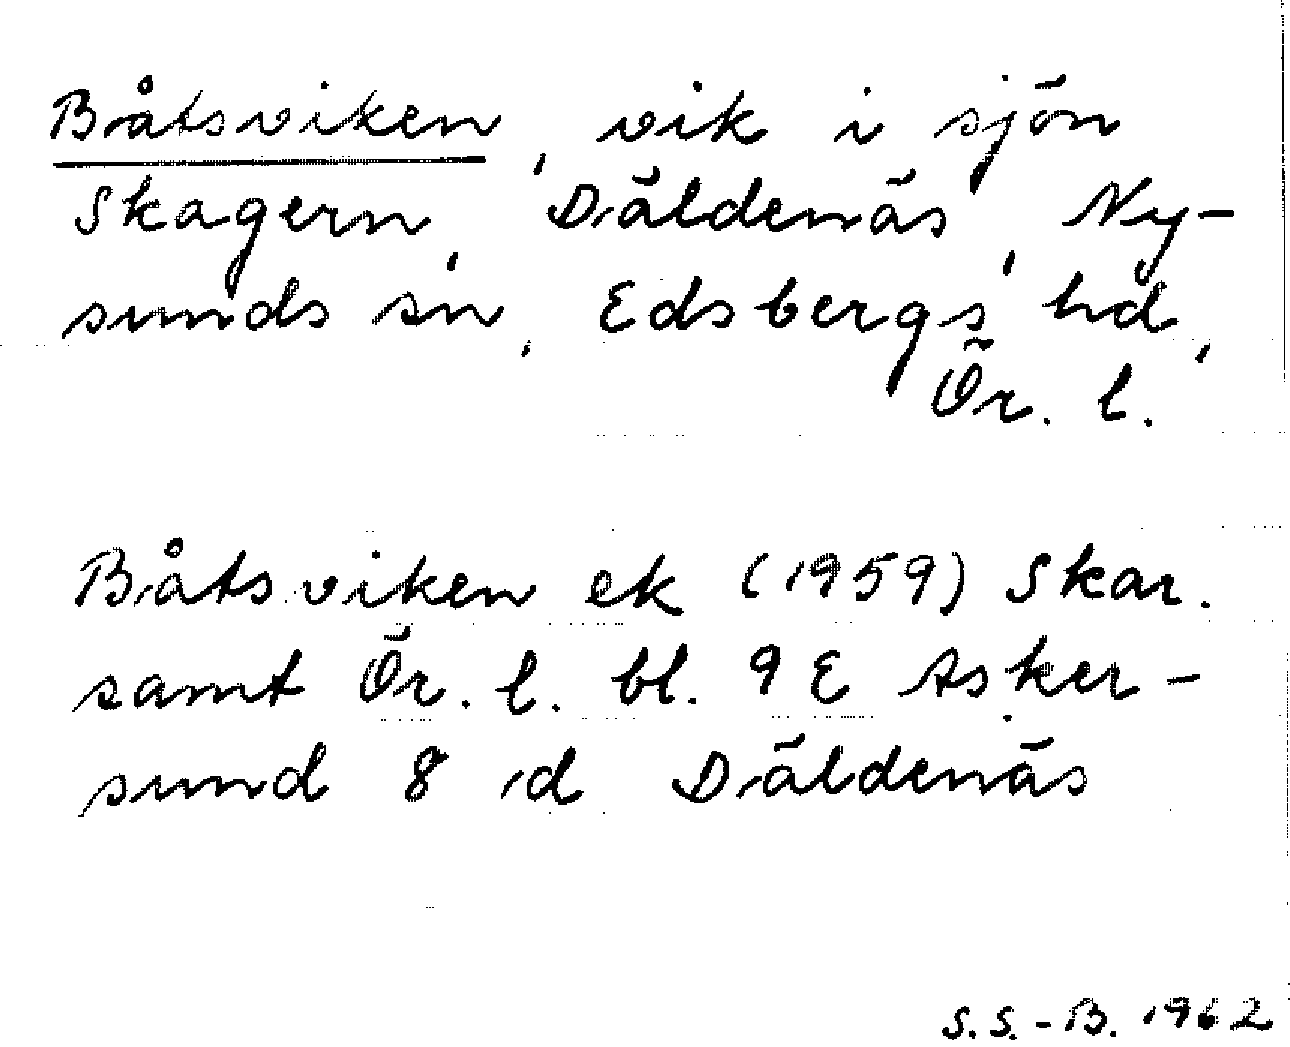 Båtsviken, vik i sjön
Skagern, Däldenäs, Ny-
sunds sn, Edsbergs hd,
Ör. l.
Båtsviken ek (1959) Skar.
samt Ör. l. bl. 9 E Asker-
sund 8 d Däldenäs
S. S. - B. 1962